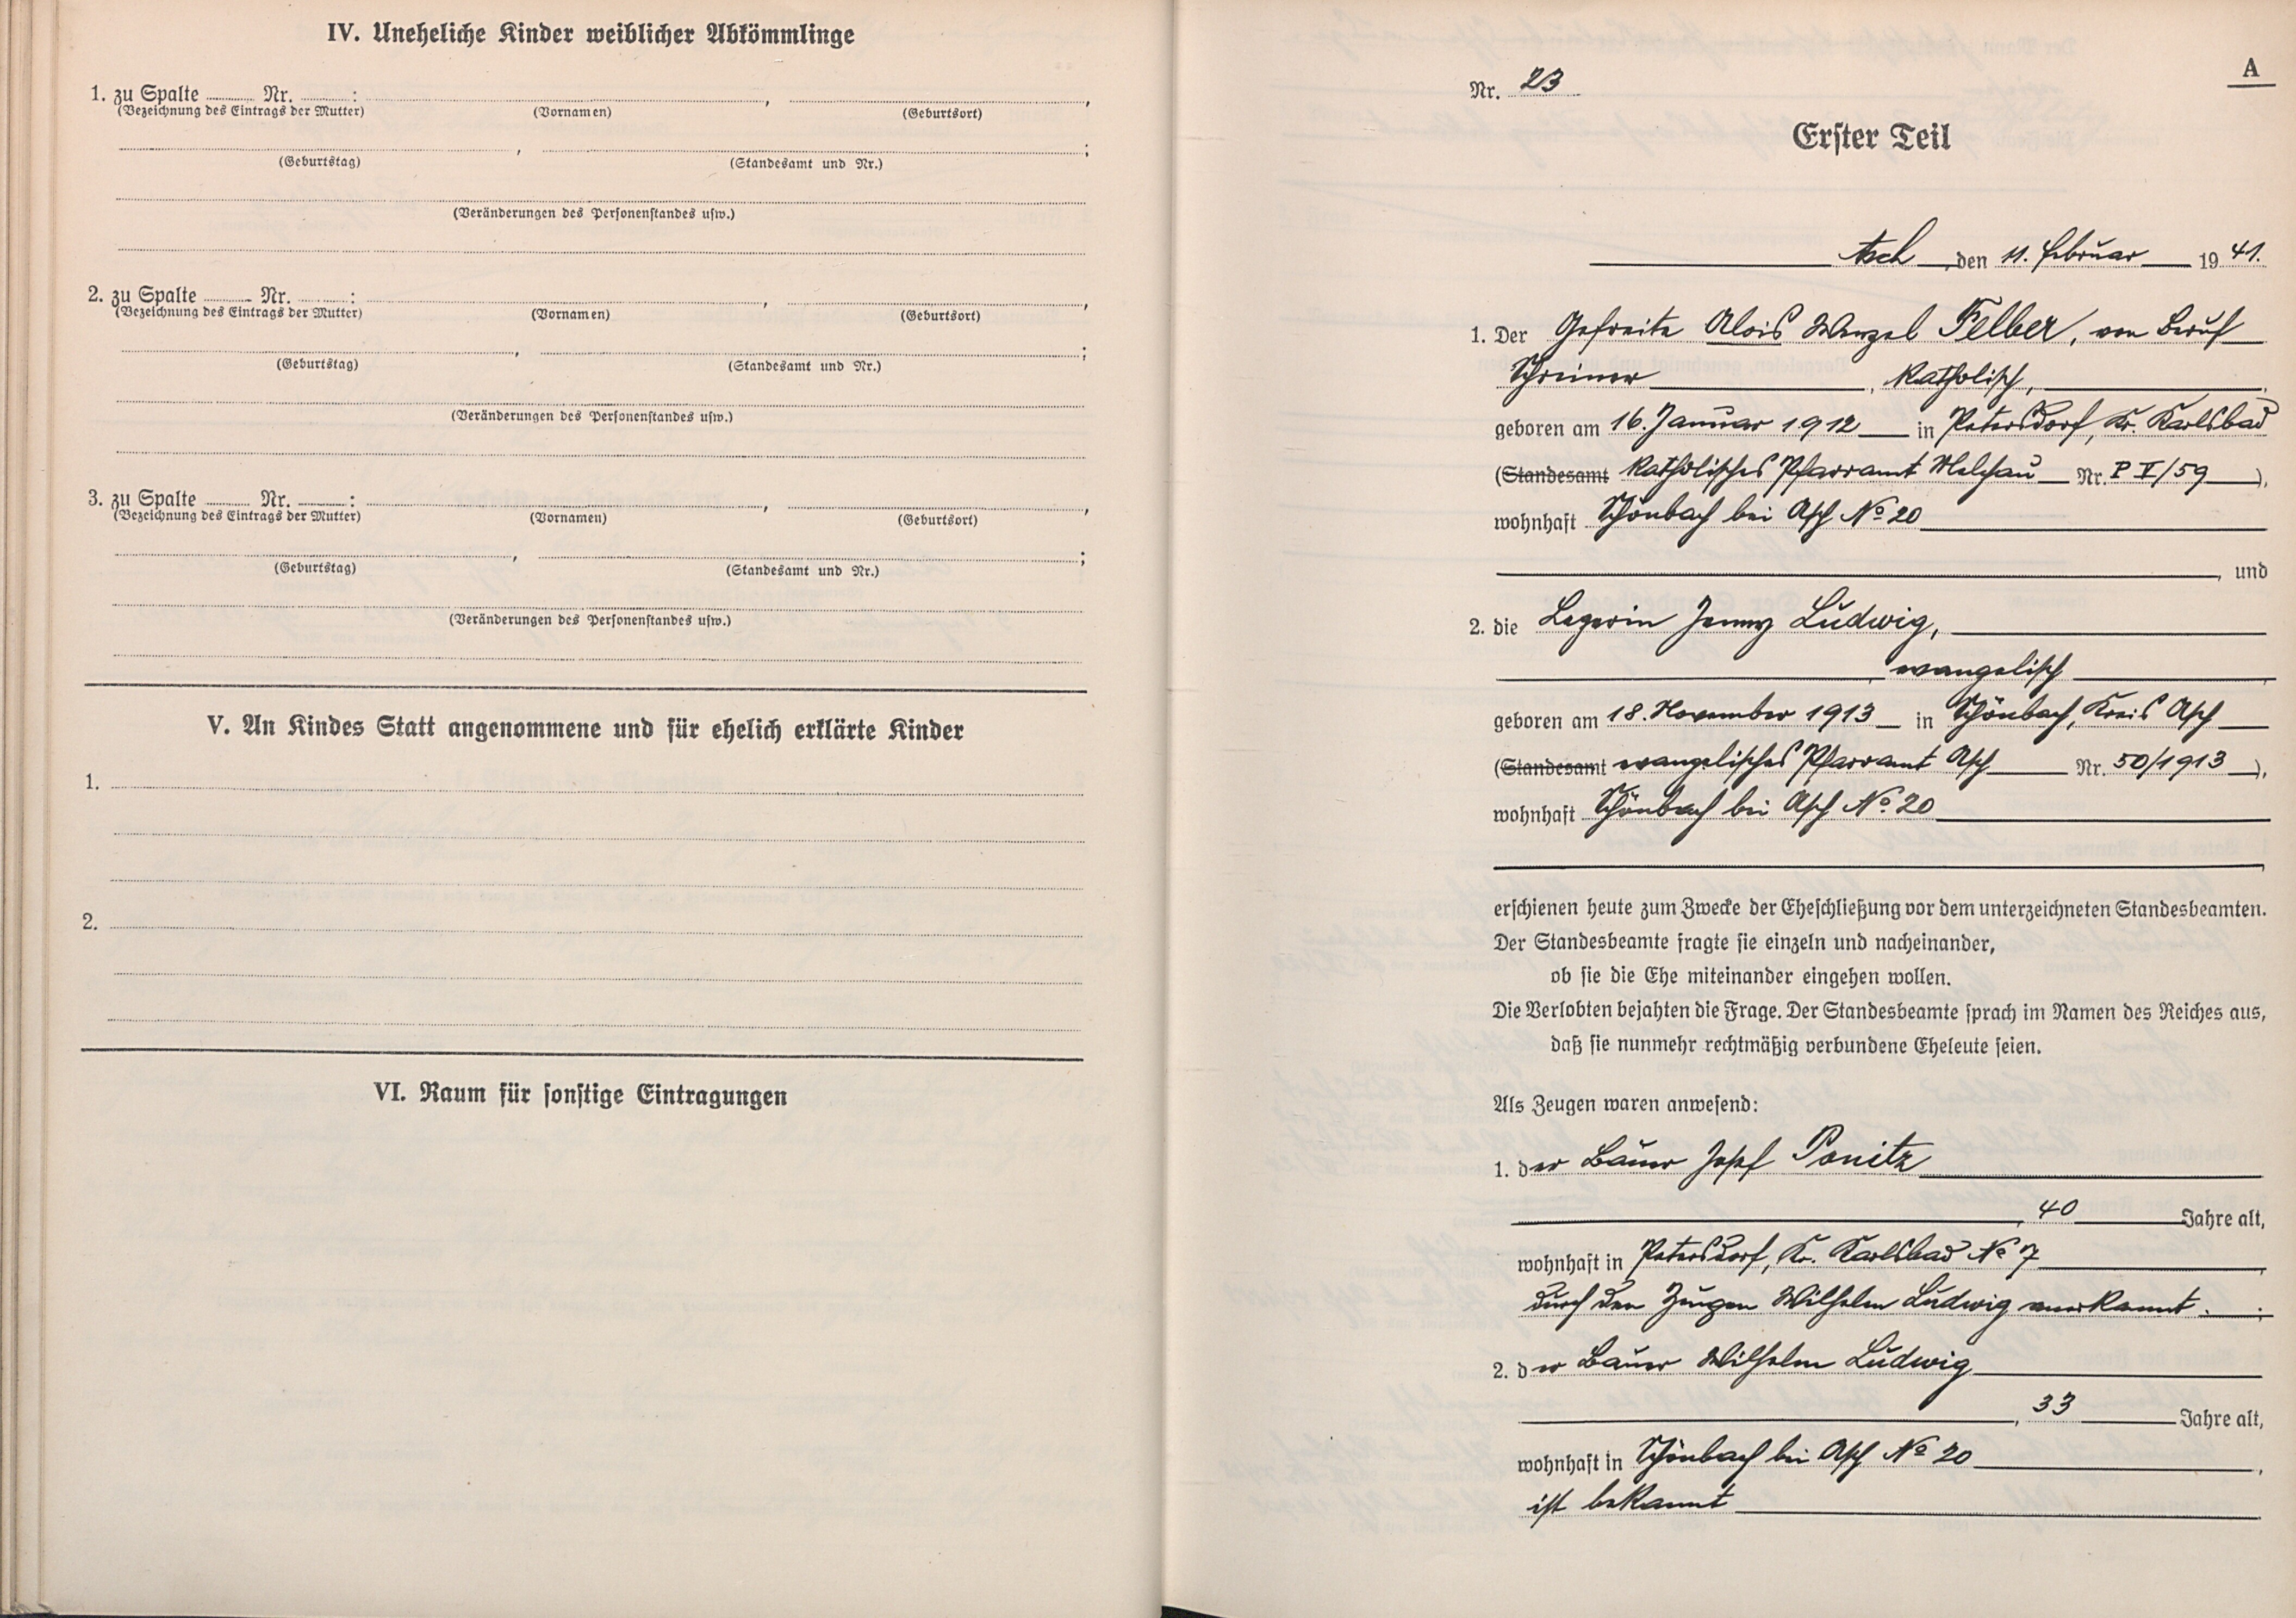 IV. Uneheliche Kinder weiblicher Abkömmlinge
1. zu Spalte ........ Nr. ........ : ........ , ........ ,
(Bezeichnung des Eintrags der Mutter) (Vornamen) (Geburtsort)
........ , ........ ;
(Geburtstag) (Standesamt und Nr.)
(Veränderungen des Personenstandes usw.)
2. zu Spalte ........ Nr. ........ : ........ , ........ ,
(Bezeichnung des Eintrags der Mutter) (Vornamen) (Geburtsort)
........ , ........ ;
(Geburtstag) (Standesamt und Nr.)
(Veränderungen des Personenstandes usw.)
3. zu Spalte ........ Nr. ........ : ........ , ........ ,
(Bezeichnung des Eintrags der Mutter) (Vornamen) (Geburtsort)
........ , ........ ;
(Geburtstag) (Standesamt und Nr.)
(Veränderungen des Personenstandes usw.)
V. An Kindes Statt angenommene und für ehelich erklärte Kinder
1.
2.
VI. Raum für sonstige Eintragungen
A
Nr. 23
Erster Teil
Asch, den 11. Februar 1941.
1. Der Gefreite Alois Wenzel Felber, von Beruf
Schreiner, katholisch,
geboren am 16. Januar 1912 in Petersdorf, Kr. Karlsbad
(Standesamt katholisches Pfarramt Nr. P V/59),
wohnhaft Schönbach bei Asch No 20
, und
2. die Legerin Jenny Ludwig,
, evangelisch,
geboren am 18. November 1913 in Schönbach, Kreis Asch
(Standesamt evangelisches Pfarramt Asch Nr. 50/1913),
wohnhaft Schönbach bei Asch No 20
erschienen heute zum Zwecke der Eheschließung vor dem unterzeichneten Standesbeamten.
Der Standesbeamte fragte sie einzeln und nacheinander,
ob sie die Ehe miteinander eingehen wollen.
Die Verlobten bejahten die Frage. Der Standesbeamte sprach im Namen des Reiches aus,
daß sie nunmehr rechtmäßig verbundene Eheleute seien.
Als Zeugen waren anwesend:
1. der Bauer Josef Ponitz
, 40 Jahre alt,
wohnhaft in Petersdorf, Kr. Karlsbad No 7,
durch den Zeugen Wilhelm Ludwig anerkannt.;
2. der Bauer Wilhelm Ludwig
, 33 Jahre alt,
wohnhaft in Schönbach bei Asch No 20,
ist bekannt